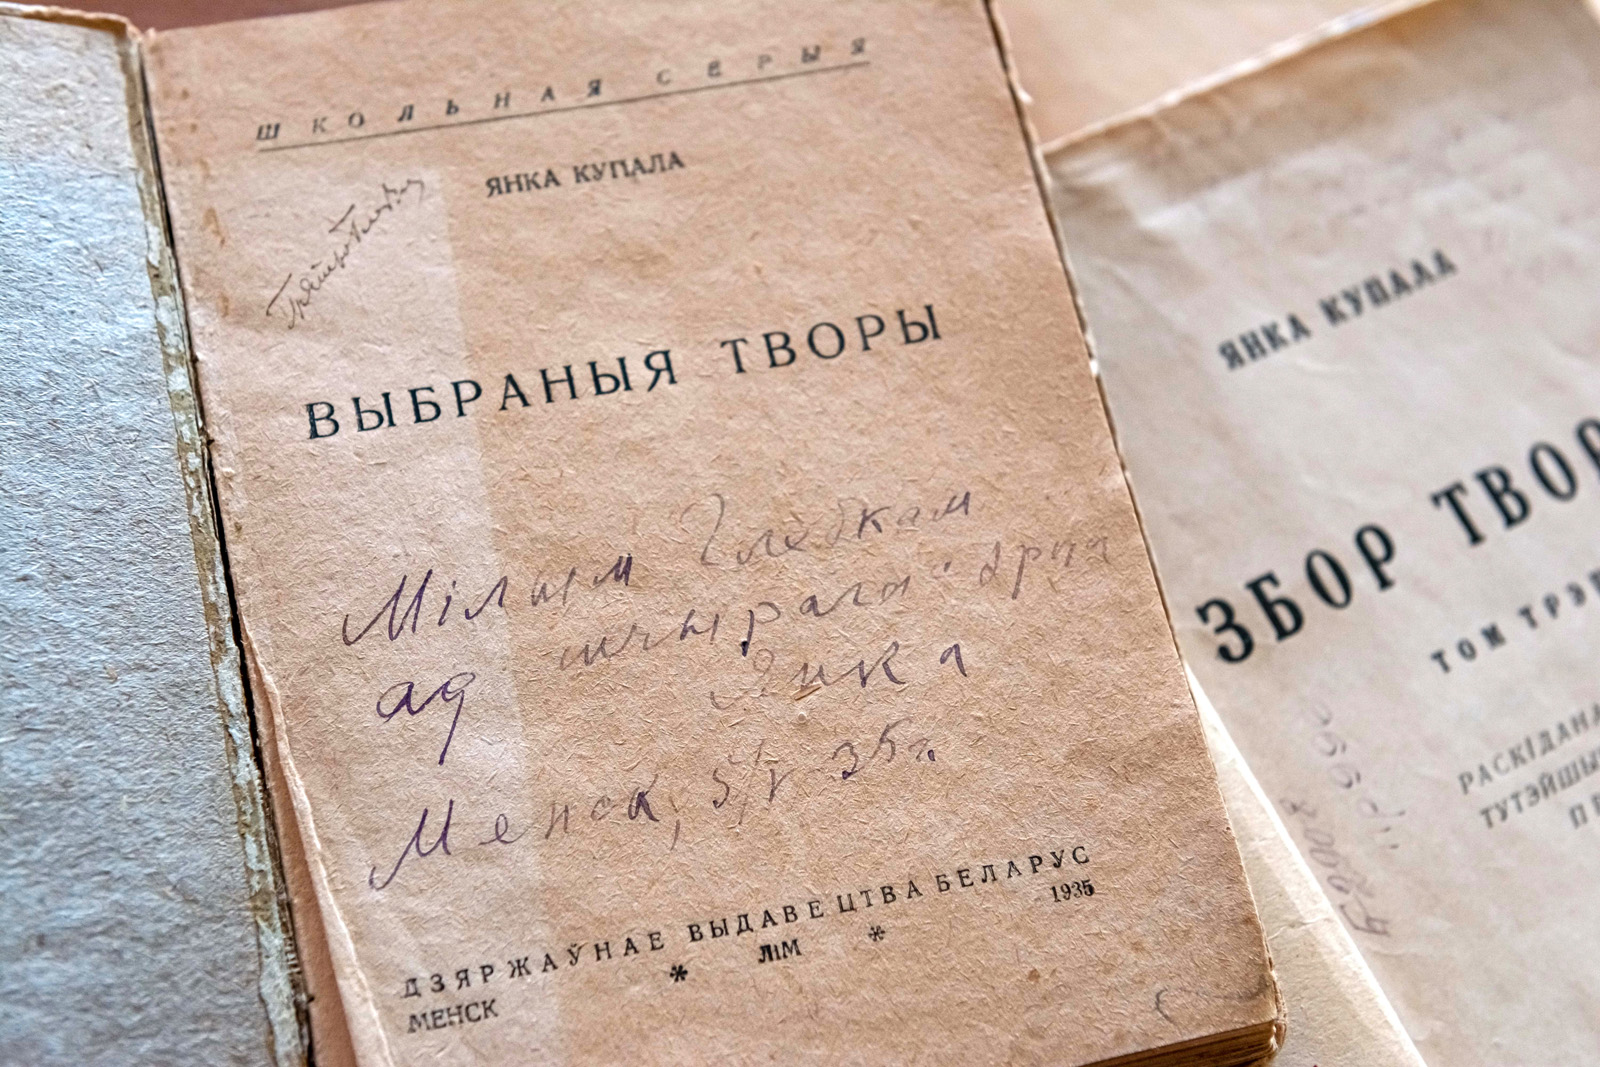 ШКОЛЬНАЯ СЕРЫЯ
ЯНКА КУПАЛА
ВЫБРАНЫЯ ТВОРЫ
Мілым Глебкам
ад шчырага
Янка
Менск, 5/V 35 г.
ДЗЯРЖАЎНАЕ ВЫДАВЕЦТВА БЕЛАРУС
МЕНСК * ЛіМ * 1935
ЯНКА КУПАЛА
ЗБОР ТВОР
ТОМ ТРЭ
РАСКІДАНА
ТУТЭЙШЫ
П